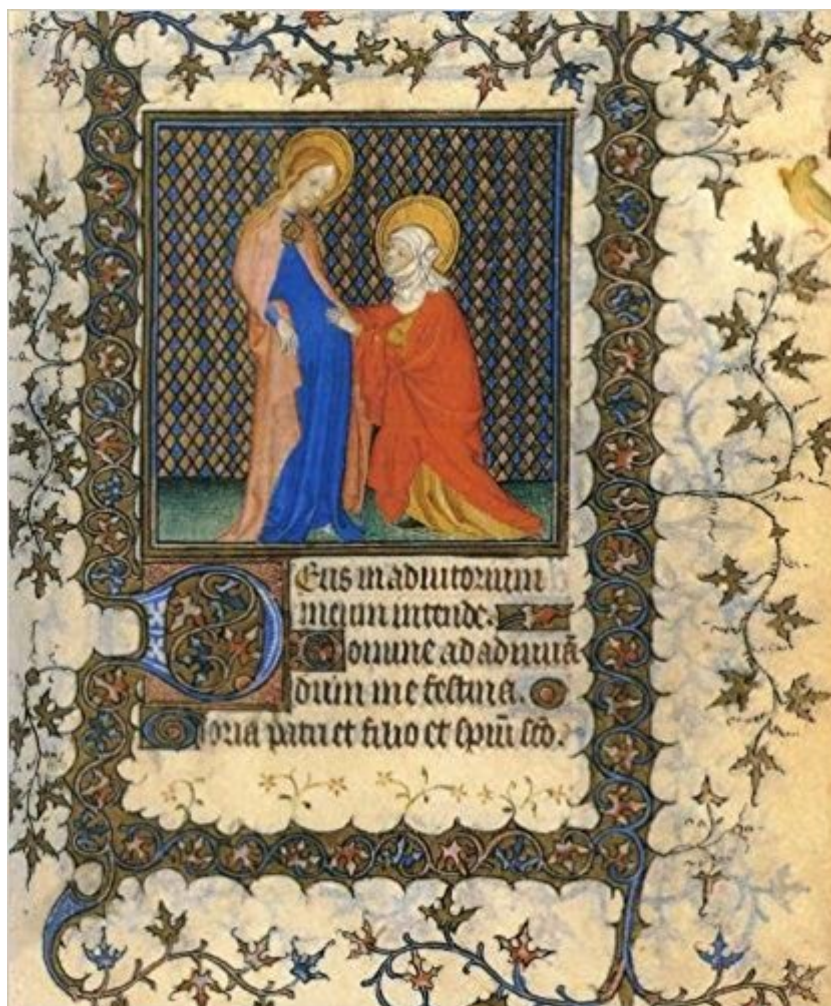 Deus in adiutorium
meum intende.
Domine ad adiuuā
dum me festina.
Gloria patri et filio et spiū sco.